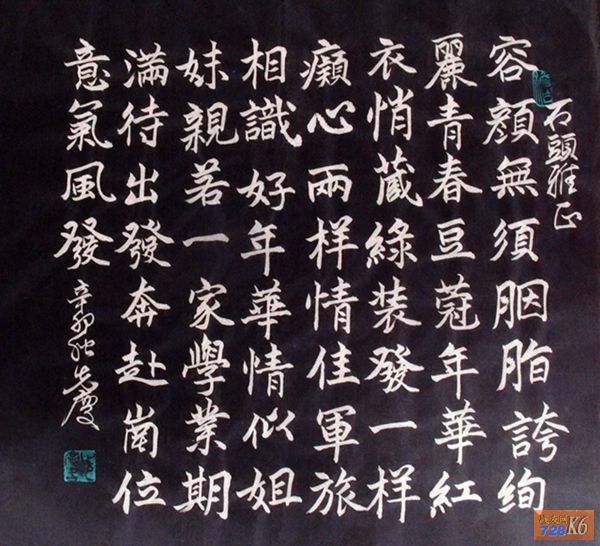 石頭雅正
容顏無須胭脂誇絢
麗青春豆蔻年華紅
衣悄藏綠装發一样
癡心兩样情佳軍旅
相識好年華情似姐
妹親若一家學業期
滿待出發奔赴崗位
意氣風發
辛卯
728 K6